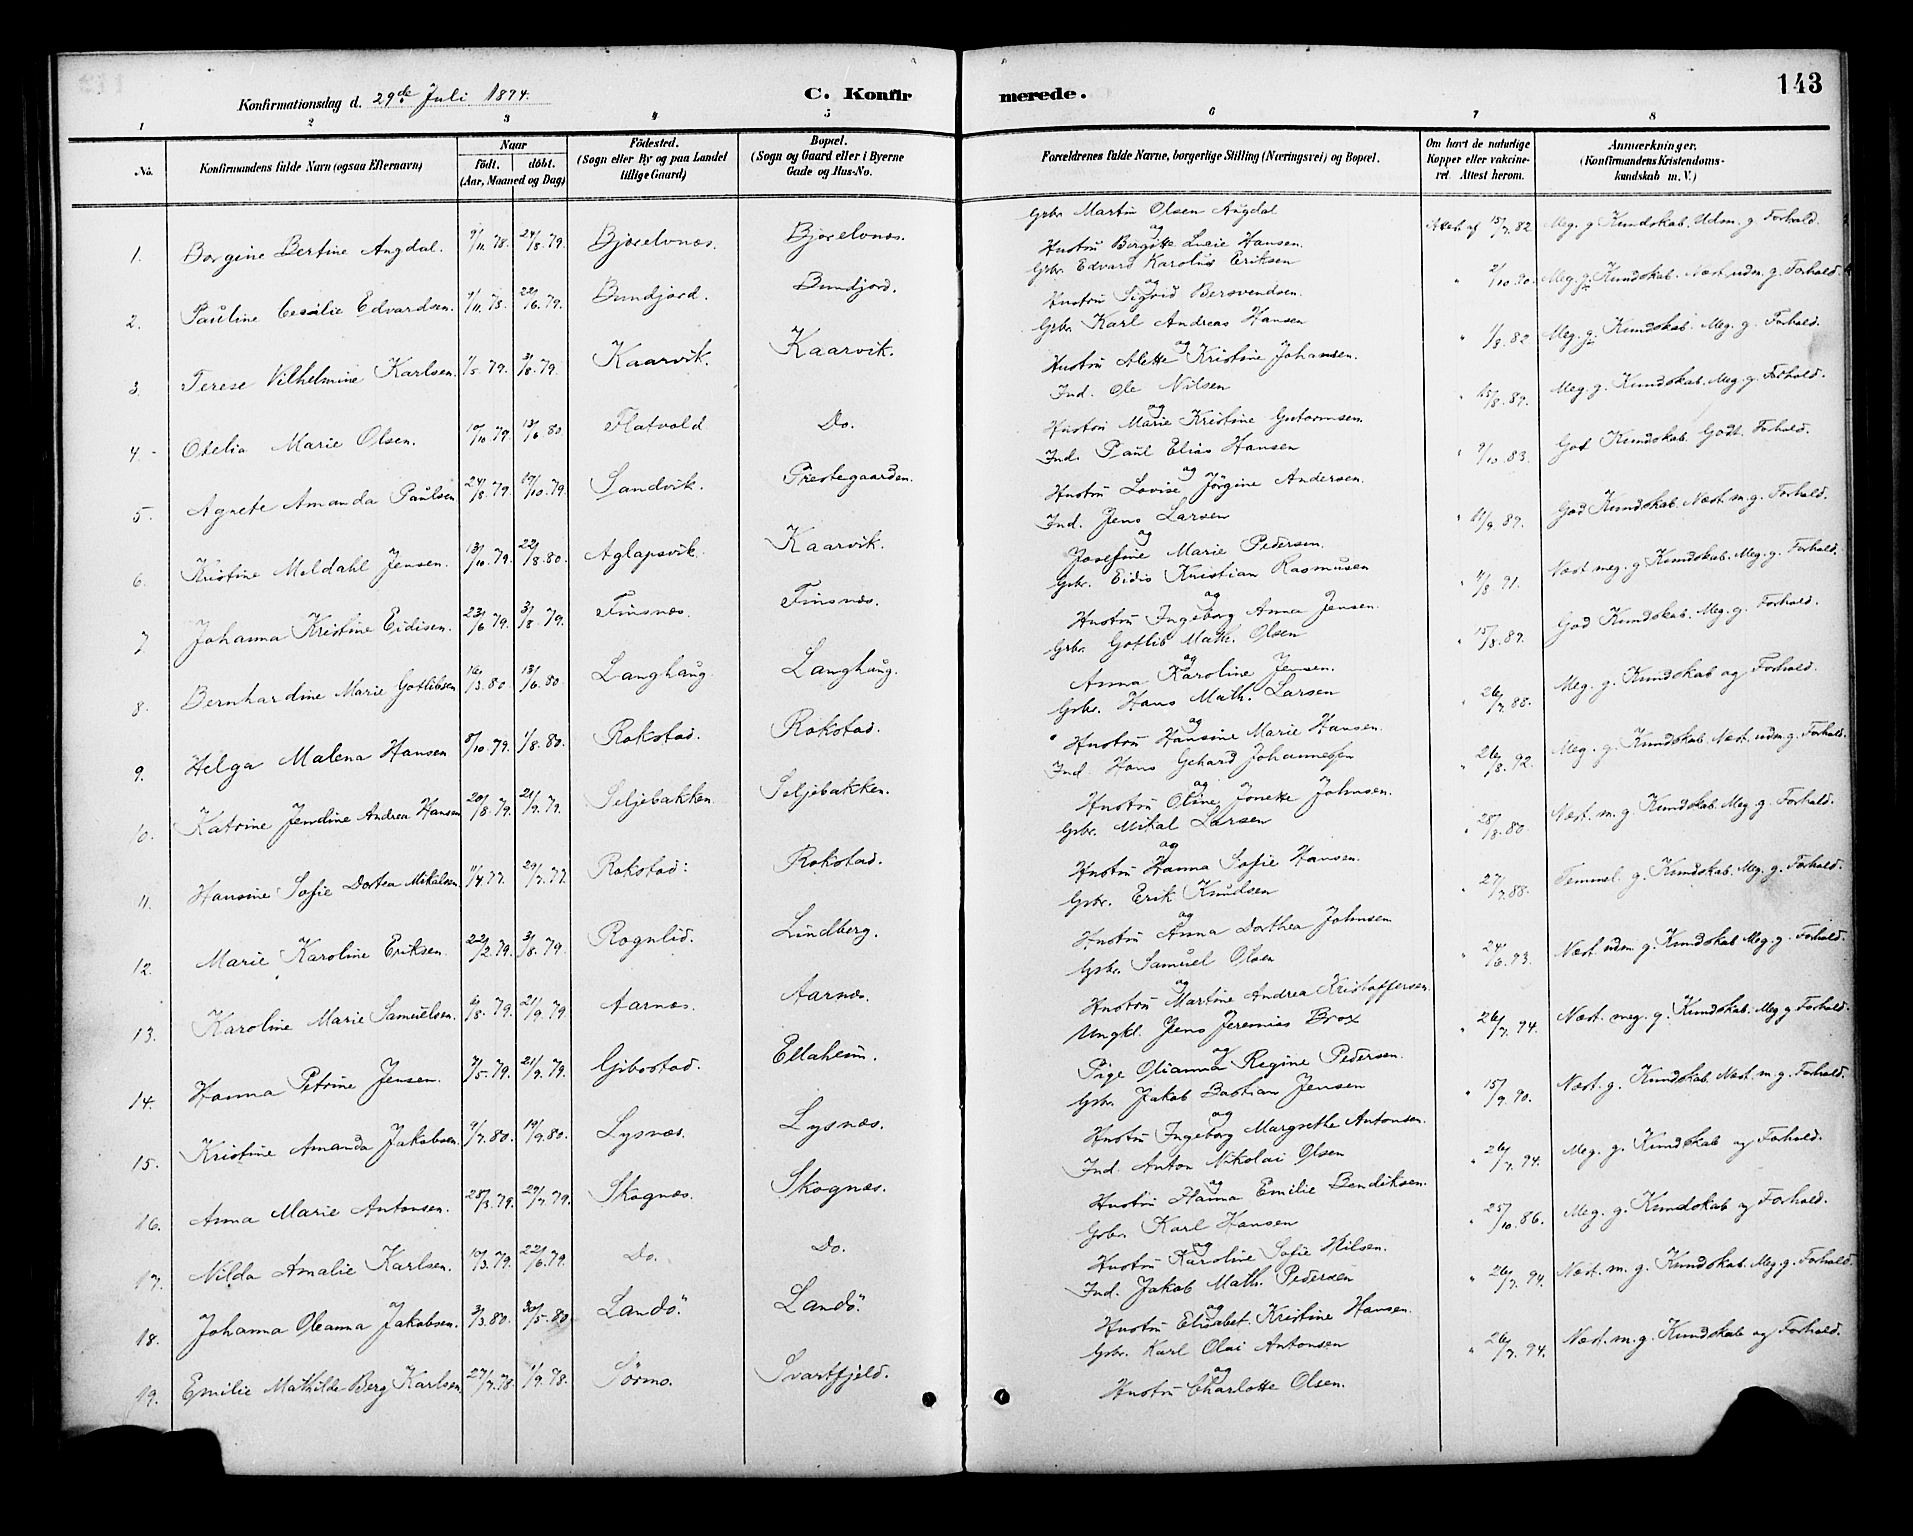 Konfirmationsdag d. 29de Juli 1894. C. Konfirmerede. 143
1 2 3 4 5 6 7 8
No. Konfirmandens fulde Navn (ogsaa Efternavn) Naar födt, döbt. (Aar, Maaned og Dag) Födested. (Sogn eller By og paa Landet tillige Gaard) Bopæl. (Sogn og Gaard eller i Byerne Gade og Hus-No. Forældrenes fulde Navne, borgerlige Stilling (Næringsvei) og Bopæl. Om havt de naturlige Kopper eller vakcineret. Attest herom. Anmærkninger. (Konfirmandens Kristendomskundskab m. V.)
1. Borgine Bertine Angdal. 9/11 78. 24/8 79. Bjorelvnæs. Bjorelvnæs. Gbr. Martin Olsen Angdal og Hustru Birgitte Hansen. Attest af 15/7 82 Meg. g. Kundskab. Udm. g. Forhold.
2. Pauline Cecilie Edvardsen. 7/11 78. 22/6 79. Bundjord. Bundjord. Gbr. Edvard Karolius Eriksen og Hustru Sigrid Bersvendsen. " 2/10 80. Meg. g. Kundskab. Næst. udm. g. Forhold.
3. Terese Vilhelmine Karlsen. 1/5 79. 3/8 79. Kaarvik. Kaarvik. Gbr. Karl Andreas Hansen og Hustru Alette Kristine Johansen. " 1/8 82 Meg. g. Kundskab. Meg. g. Forhold.
4. Otelia Marie Olsen. 10/10 79. 13/6 80 Flatvold Do. Ind. Ole Nilsen og Hustru Marie Kristine Guttormsen. " 15/8 89. Meg. g. Kundskab. Meg. g. Forhold.
5. Agnete Amanda Paulsen 24/8 79. 19/10 79. Sandvik. Prestegaarden. Ind. Paul Elias Hansen og Hustru Lovise Jörgine Andersen. " 9/10 83. God Kundskab. Godt. Forhold.
6. Kristine Meldahl Jensen. 13/10 79. 22/8 80. Aglapsvik. Kaarvik. Ind. Jens Larsen og Josefine Marie Pedersen. " 11/9 89. God Kundskab. Næst. m. g. Forhold.
7. Johanna Kristine Eidisen. 23/6 79. 3/8 79. Finsnæs. Finsnæs. Gbr. Eidis Kristian Rasmusen og Hustru Ingeborg Anna Jensen. " 4/8 91. Næst meg. g. Kundskab. Meg. g. Forhold.
8. Bernhardine Marie Gotlibsen 16/3 80. 13/6 80. Langhaug. Langhaug. Gbr. Gotlib Math. Olsen og Anna Karoline Jensen. " 15/8 89. God Kundskab. Meg. g. Forhold.
9. Helga Malena Hansen 8/10 79. 1/8 80. Rokstad. Rokstad. Gbr. Hans Math. Larsen og Hustru Hansine Marie Hansen. " 26/7 88. Meg. g. Kundskab og Forhold.
10. Katrine Jendine Andrea Hansen 20/8 79. 21/9 79. Seljebakken. Seljebakken. Ind. Hans Gehard Johannesen og Hustru Oline Jonette Johnsen. " 26/8 92. Meg. g. Kundskab. Næst. udm. g. Forhold.
11. Hansine Sofie Dortea Mikalsen. 11/4 77. 29/7 77. Rokstad. Rokstad. Gbr. Mikal Larsen og Hustru Hanna Sofie Hansen. " 28/8 80. Næst. m. g. Kundskab. Meg. g. Forhold.
12. Marie Karoline Eriksen. 22/2 79. 3/8 79. Rognlid. Lindberg. Gbr. Erik Knudsen og Hustru Anna Dorthea Johnsen " 27/7 88. Temmel. g. Kundskab. Meg. g. Forhold.
13. Karoline Marie Samuelsen. 6/8 79. 21/9 79 Aarnæs. Aarnæs. Gbr. Samuel Olsen og Hustru Martine Andrea Kristoffersen. " 24/6 93. Næst. udm. g. Kundskab. Meg. g. Forhold.
14. Hanna Petrine Jensen. 7/5 79. 21/9 79. Gibostad. Ellaheim. Ungkl. Jens Jeremias Brox og Pige Olianna Regine Pedersen. " 26/7 94. Næst. meg. g. Kundskab. Meg. g. Forhold.
15. Kristine Amanda Jakobsen. 9/7 80. 19/9 80. Lysnæs. Lysnæs. Gbr. Jakob Bastian Jensen og Hustru Ingeborg Margrethe Antonsen. " 15/9 90. Næst. g. Kundskab. Næst. m. g. Forhold.
16. Anna Marie Antonsen. 28/3 79. 29/7 79. Skognæs. Skognæs. Ind. Anton Nikolai Olsen og Hustru Hanna Emilie Bendiksen. " 26/7 94. Meg. g. Kundskab og Forhold.
17. Nilda Amalie Karlsen. 10/3 79. 22/6 79. Do. Do. Gbr. Karl Hansen og Hustru Karoline Sofie Nilsen. " 25/10 86. Meg. g. Kundskab og Forhold.
18. Johanna Oleanna Jakobsen. 3/3 80. 30/5 80 Landö. Landö. Ind. Jakob Math. Pedersen og Hustru Elisabet Kristine Hansen. " 26/7 94. Næst. m. g. Kundskab. Meg. g. Forhold.
19. Emilie Mathilde Berg Karlsen 27/7 78. 1/9 78. Sörmo. Svartfjeld. Gbr. Karl Olai Antonsen og Hustru Charlotte Olsen. " 26/7 94. Næst. m. g. Kundskab og Forhold.